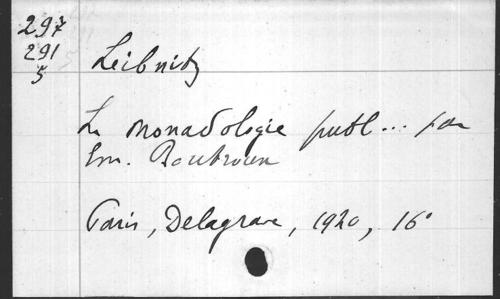 297
291
5
Leibnitz
La Monadologie publ... par
Em. Boutroux
Paris, Delagrave, 1920, 16°